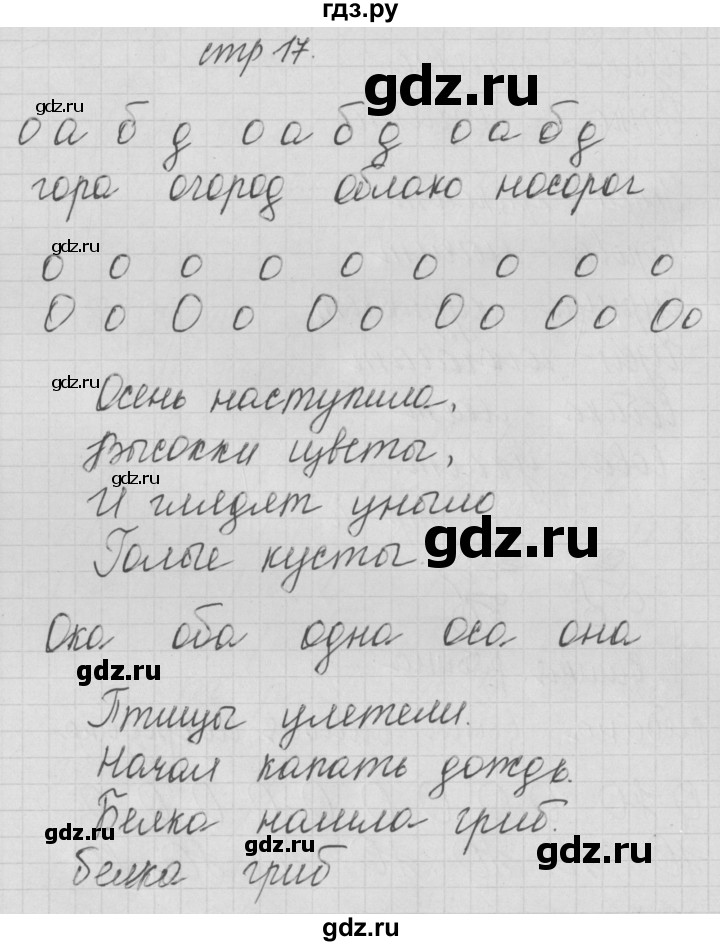 гдз.ру
стр 17.
gdz.ru
gdz.ru
о а б д о а б д о а б д
гора огород облако носорог
gdz.ru
о о о о о о о о о
О о О о О о О о О о О о
gdz.ru
Осень наступила,
Высохли цветы,
gdz.ru
И глядят уныло
gdz.ru
Голые кусты.
Ока оба одна оса она
gdz.ru
Птицы улетели.
Начал капать дождь.
Белка нашла гриб.
gdz.ru
gdz.ru
gdz.ru
белка гриб
gdz.ru